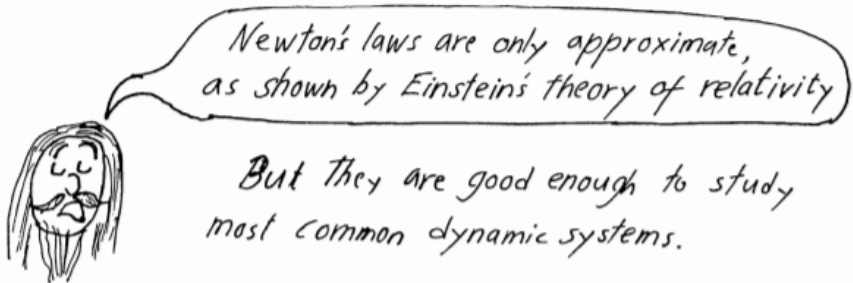 Newton's laws are only approximate,
as shown by Einstein's theory of relativity
But they are good enough to study
most common dynamic systems.